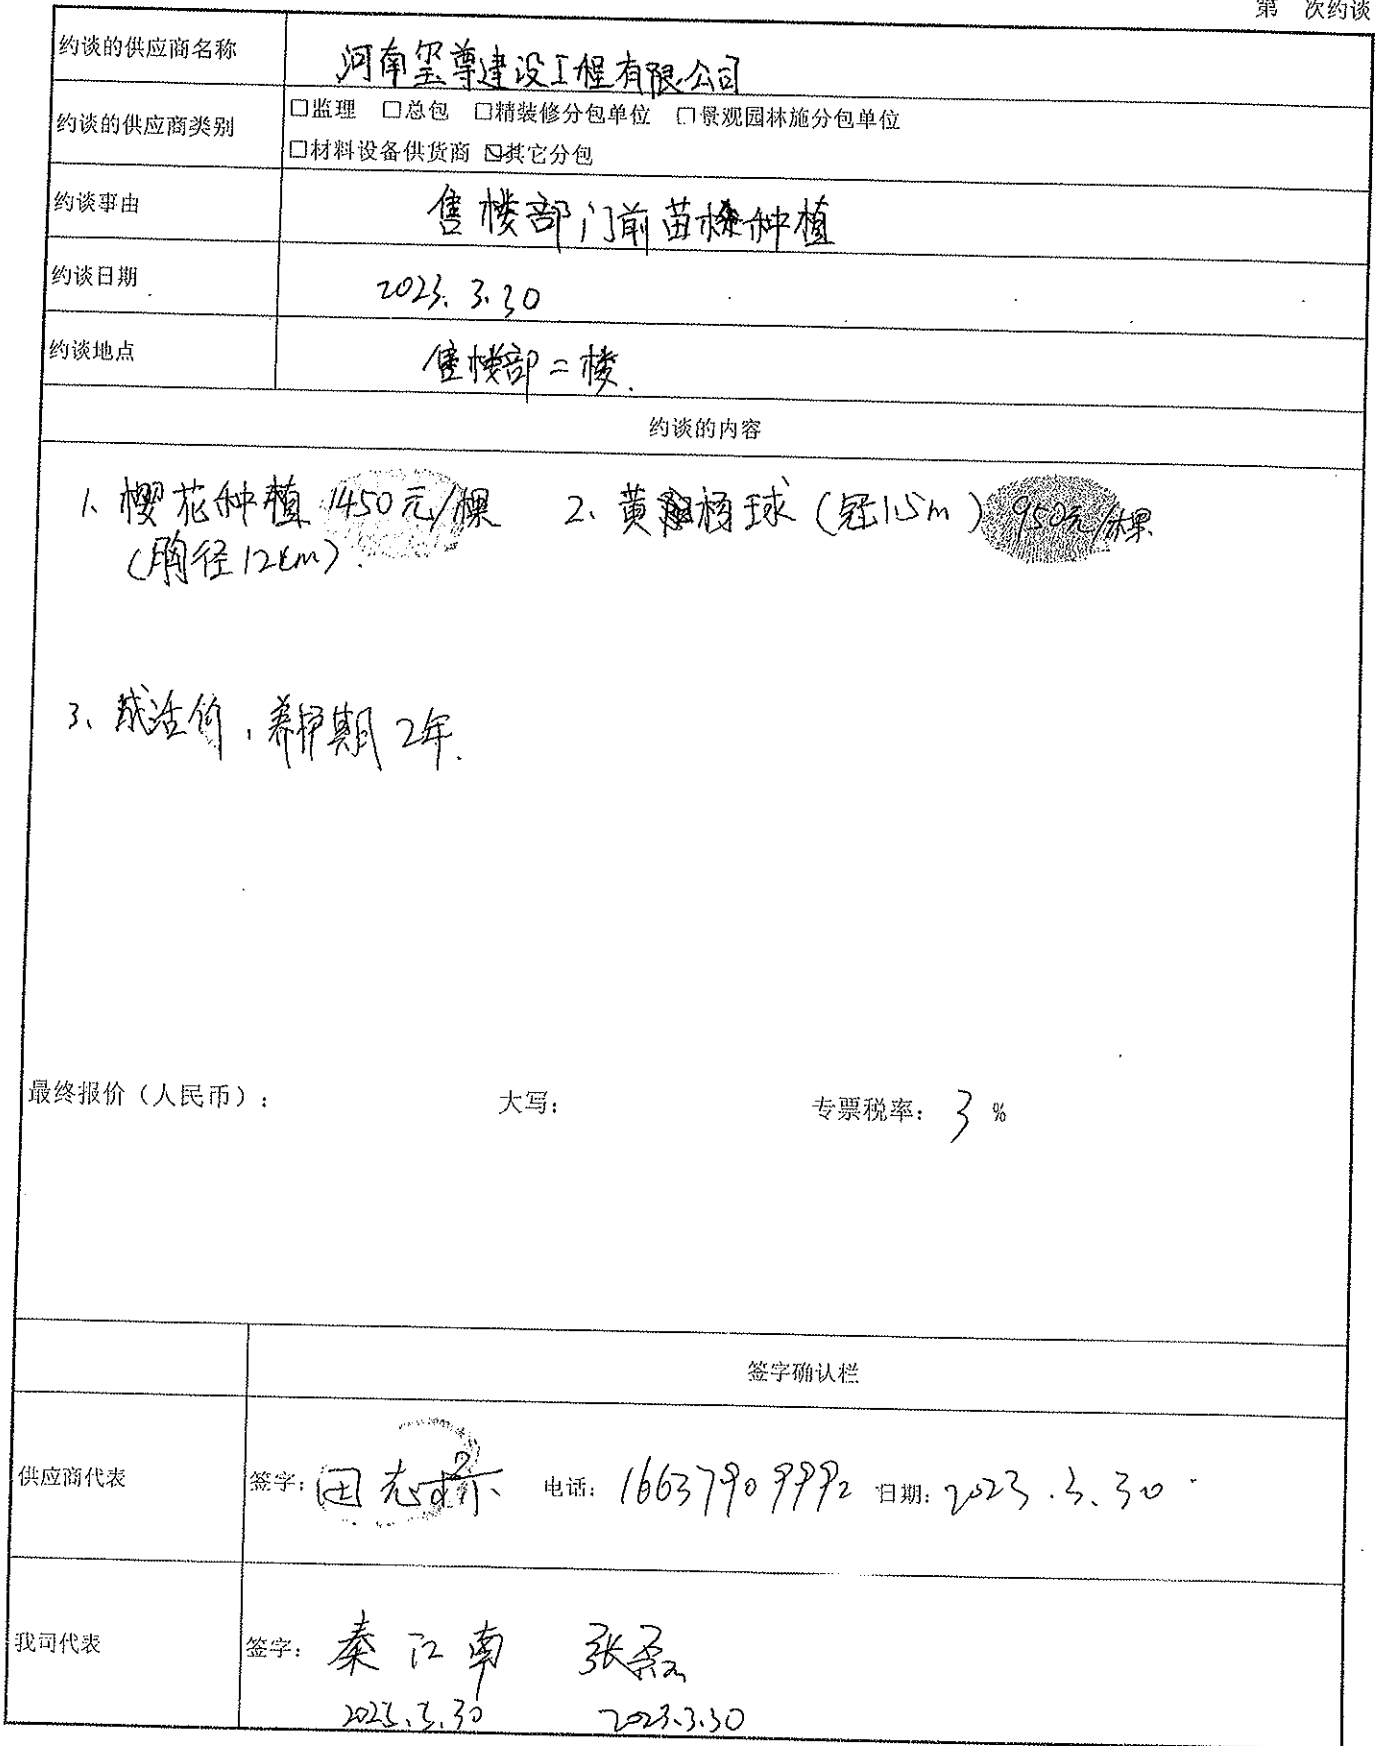 第 次约谈
约谈的供应商名称 河南玺尊建设工程有限公司
约谈的供应商类别 □监理 □总包 □精装修分包单位 □景观园林施分包单位
□材料设备供货商 ☑其它分包
约谈事由 售楼部门前苗株种植
约谈日期 2023.3.30
约谈地点 售楼部二楼.
约谈的内容
1、樱花种植 1450元/棵 2、黄杨球(冠1.5m) 950元/棵
(胸径12cm).
3、成活价,养护期2年.
最终报价(人民币): 大写: 专票税率: 3 %
签字确认栏
供应商代表 签字: 田志 电话: 16637909992 日期: 2023.3.30
我司代表 签字: 秦江南 张磊
2023.3.30 2023.3.30